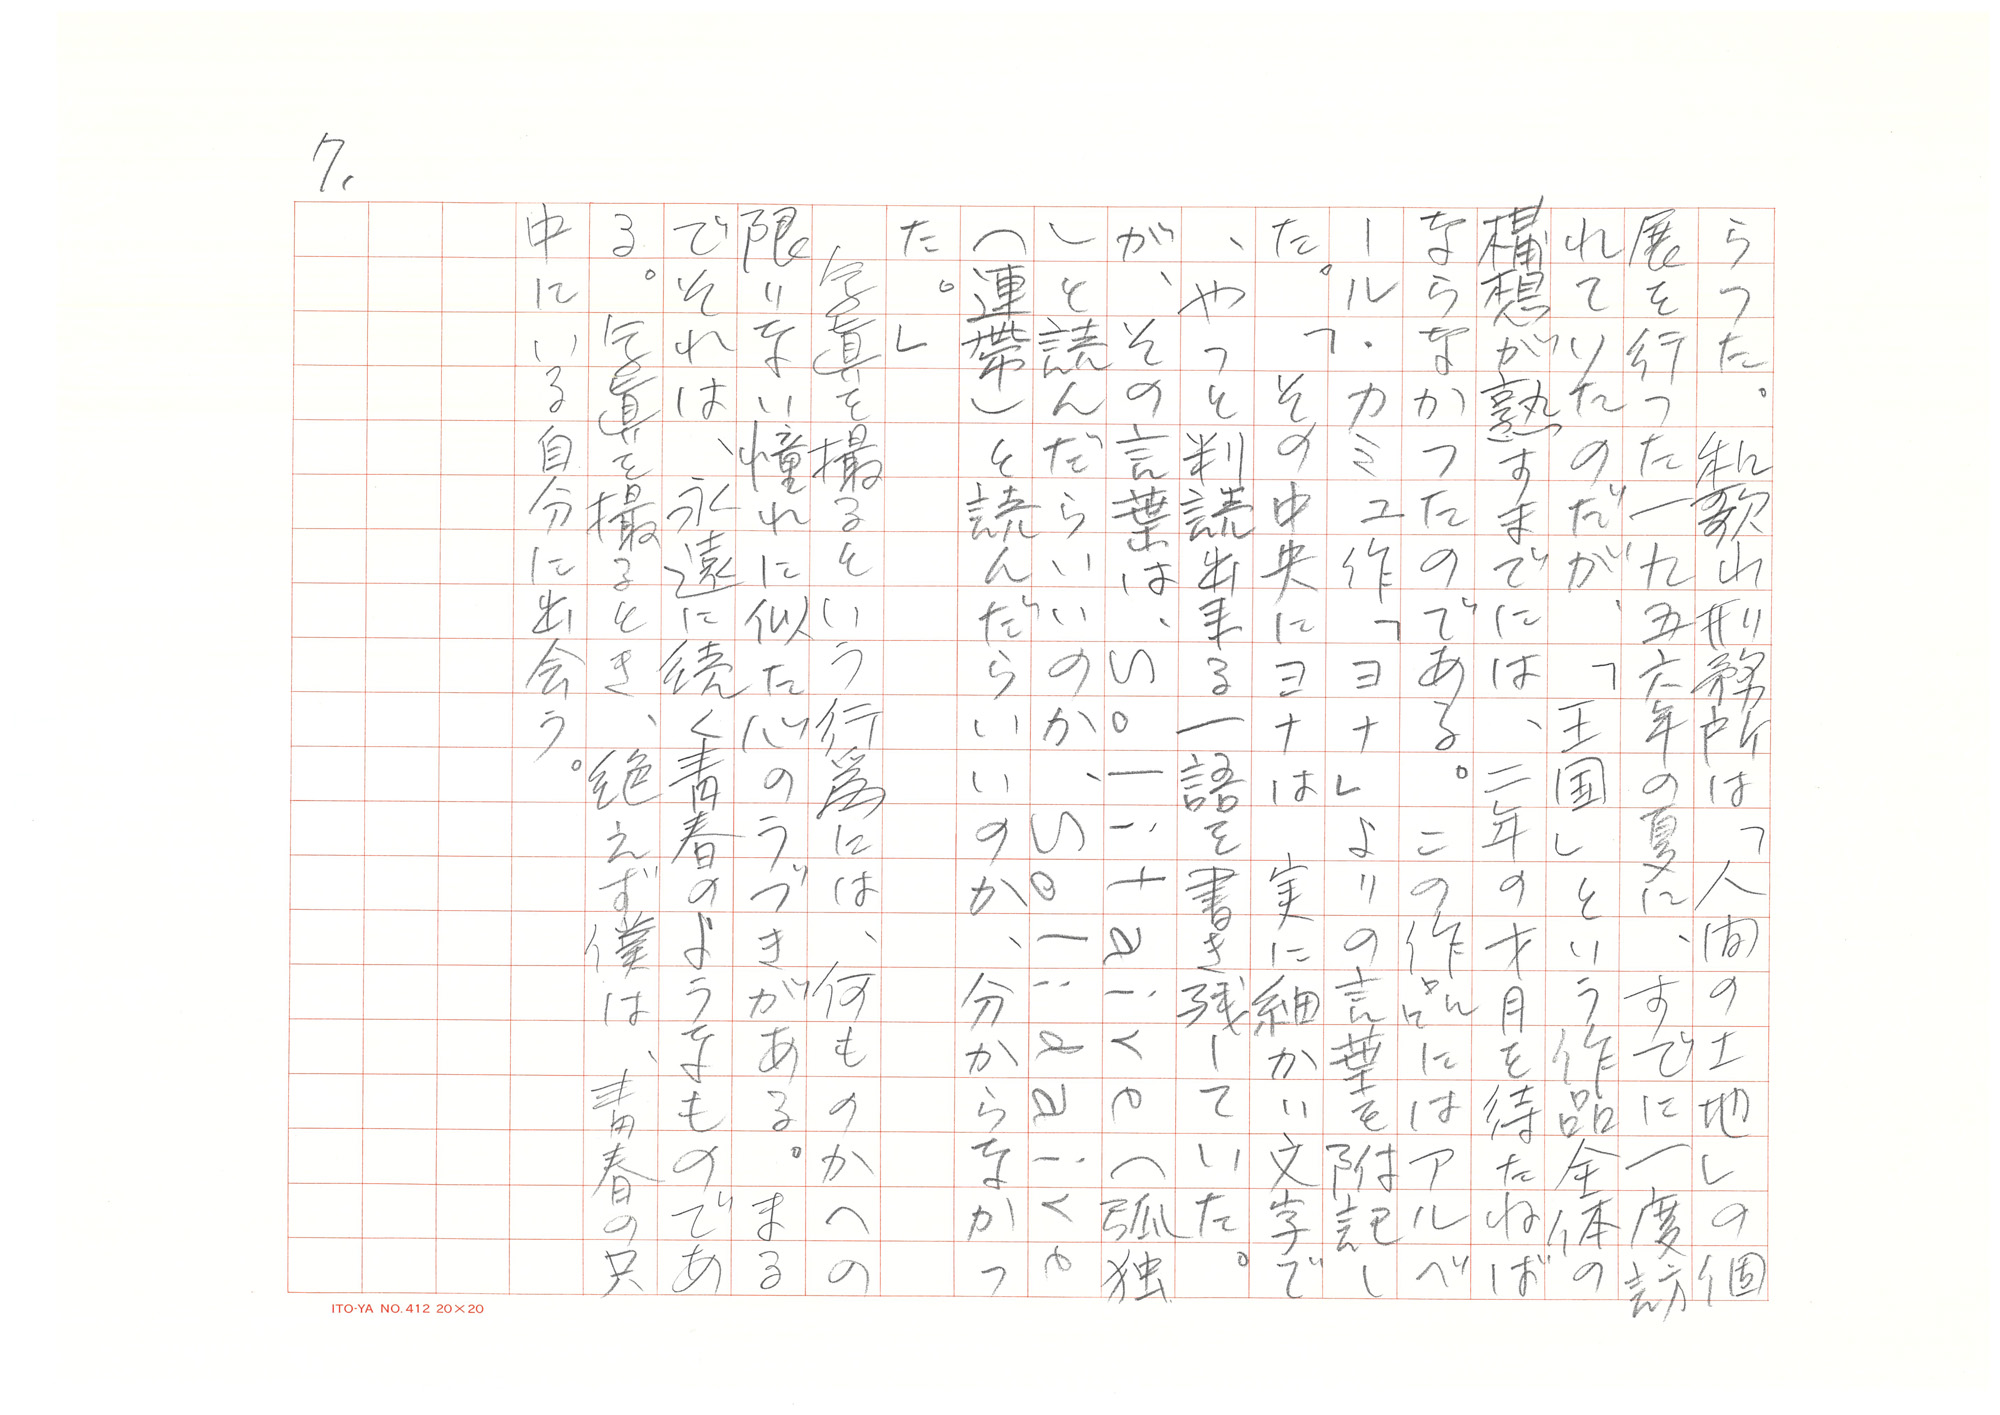 7.
らった。和歌山刑務所は「人間の土地」の個
展を行った一九五六年の夏に、すでに一度訪
れてりたのだが、「王国」という作品全体の
構想が熟すまでには、二年の才月を待たねば
ならなかったのである。この作品にはアルベ
ール・カミュ作「ヨナ」よりの言葉を附記し
た。「その中央にヨナは実に細かい文字で
、やっと判読出来る一語を書き残していた。
が、その言葉は、Solitaire(孤独
)と読んだらいいのか、Solidaire
(連帯)と読んだらいいのか、分からなかっ
た。」
写真を撮るという行為には、何ものかへの
限りない憧れに似た心のうづきがある。まる
でそれは、永遠に続く青春のようなものであ
る。写真を撮るとき、絶えず僕は、青春の只
中にいる自分に出会う。
ITO-YA NO.412 20×20